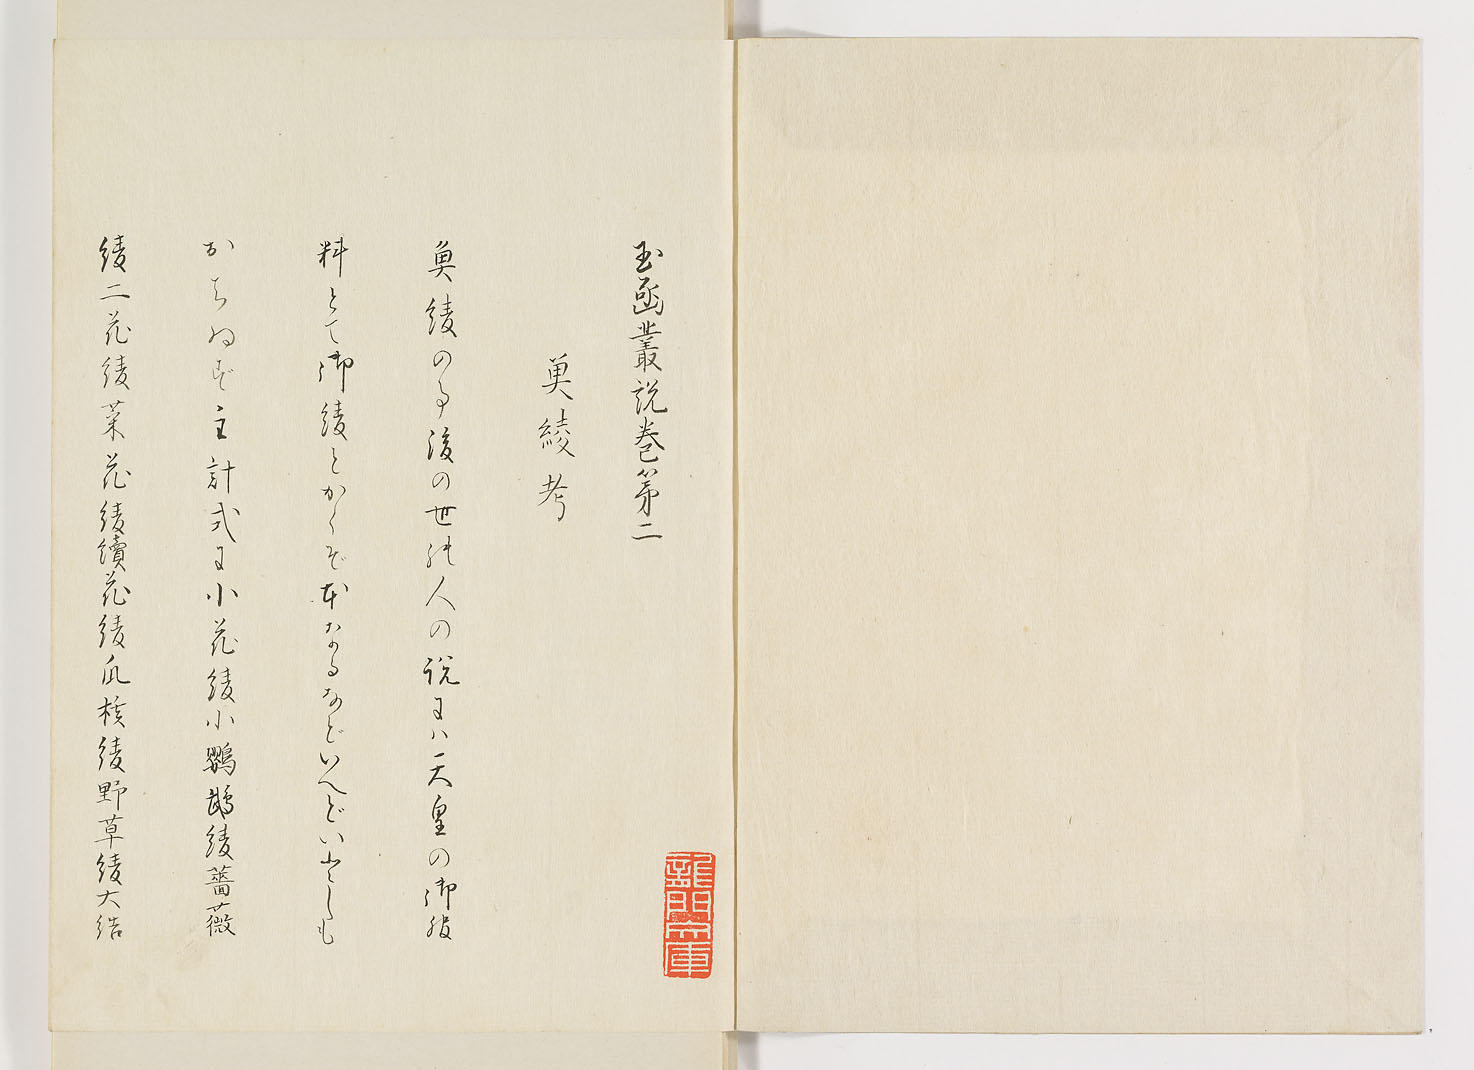 玉函叢説巻第二
魚綾考
魚綾の事後の世の人の説には天皇の御服
料とて御綾とかくぞ本なるなどいへどいふし
おもはず主計式に小花綾小鸚鵡綾薔薇
綾二花綾菜花綾續花綾瓜樣綾野草綾大
龍門文庫